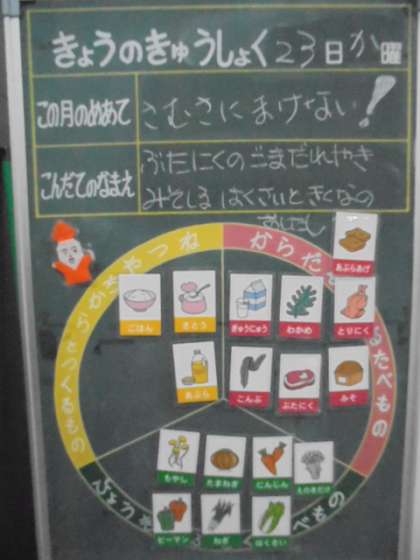 きょうのきゅうしょく 23日か曜
この月のめあて
さむさにまけない!
こんだてのなまえ
ぶたにくのごまだれやき
みそしる はくさいときくなの
おひたし
ねつやちからをつくるもの
からだを
るたべもの
あぶらあげ
ごはん
さとう
ぎゅうにゅう
わかめ
とりにく
あぶら
こんぶ
ぶたにく
みそ
もやし
たまねぎ
にんじん
えのきだけ
ピーマン
ねぎ
はくさい
べもの